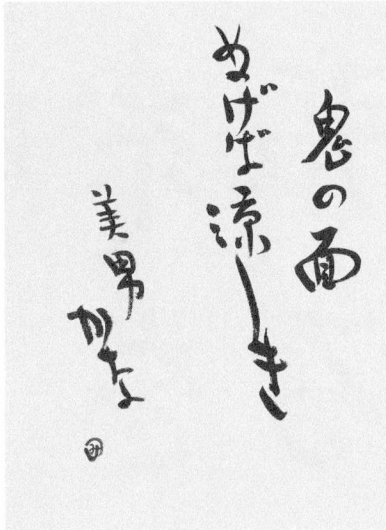 鬼の面
ぬげば涼しき
美男かな
み